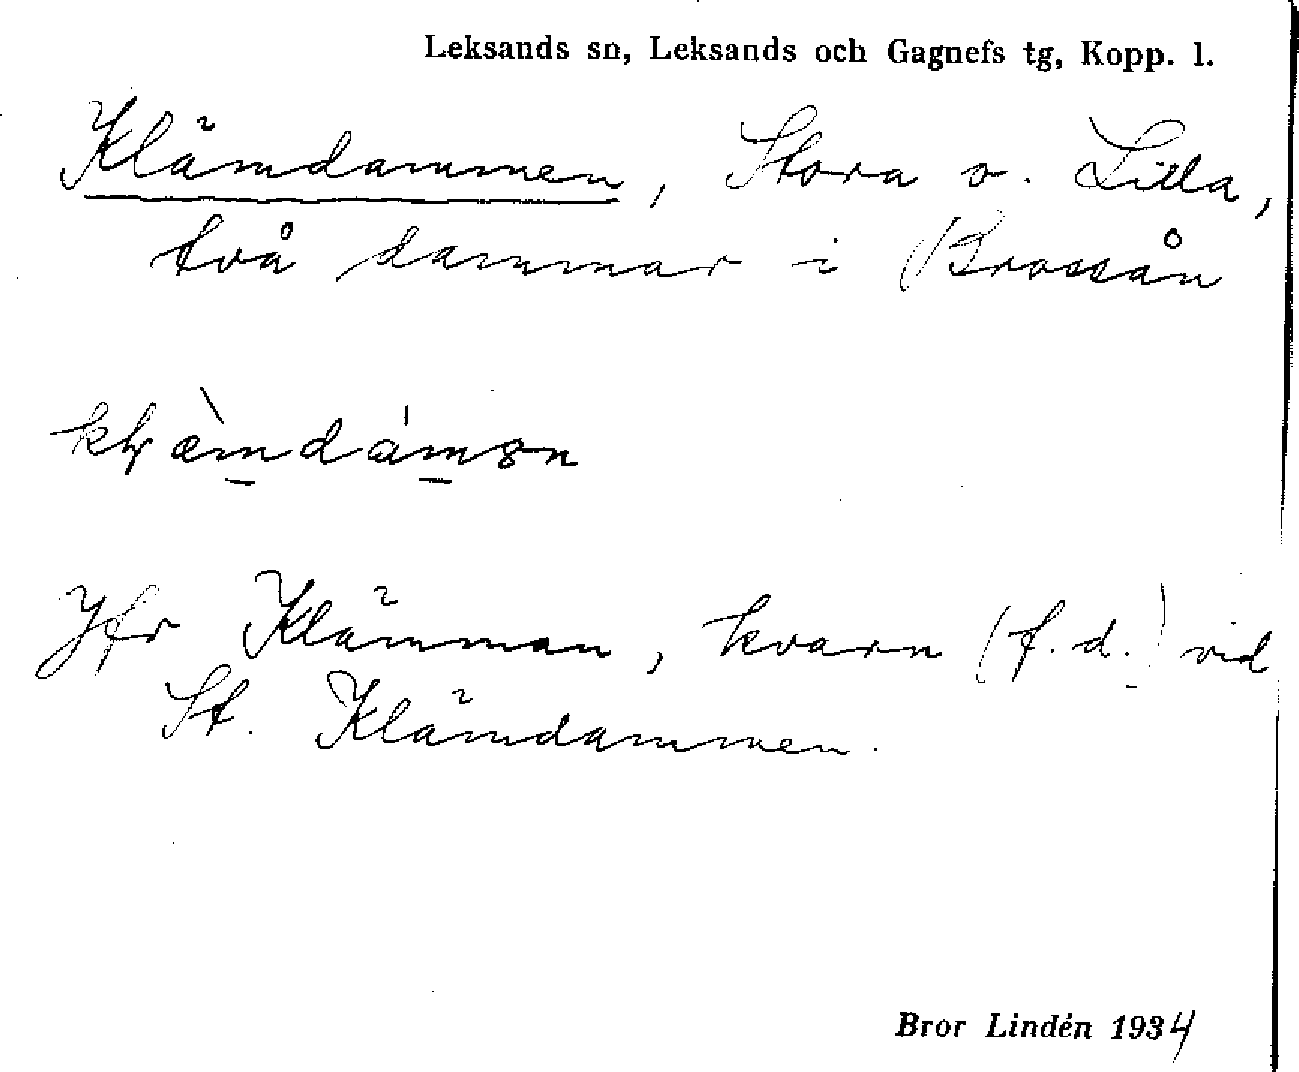 Leksands sn, Leksands och Gagnefs tg, Kopp. l.
Klämdammen, Stora o. Lilla,
två dammar i Brossån
Jfr Klämman, kvarn (f.d.) vid
St. Klämdammen.
Bror Lindén 1934